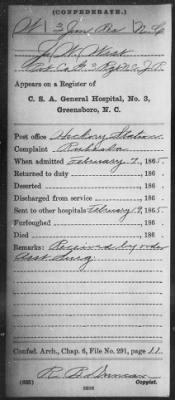 (CONFEDERATE.)
W 3 Jun. Res N C
J. W. West
Co. G. 3 Rgt N.C. J.R.
Appears on a Register of
C. S. A. General Hospital, No. 3,
Greensboro, N. C.
Post office Hickory Station
Complaint Rubeola
When admitted February 7, 1865.
Returned to duty , 186 .
Deserted , 186 .
Discharged from service , 186 .
Sent to other hospitals February 9, 1865.
Furloughed , 186 .
Died , 186 .
Remarks: Received by order
Asst Surg
Confed. Arch., Chap. 6, File No. 291, page 11
R. B. Duncan
(635) Copyist.